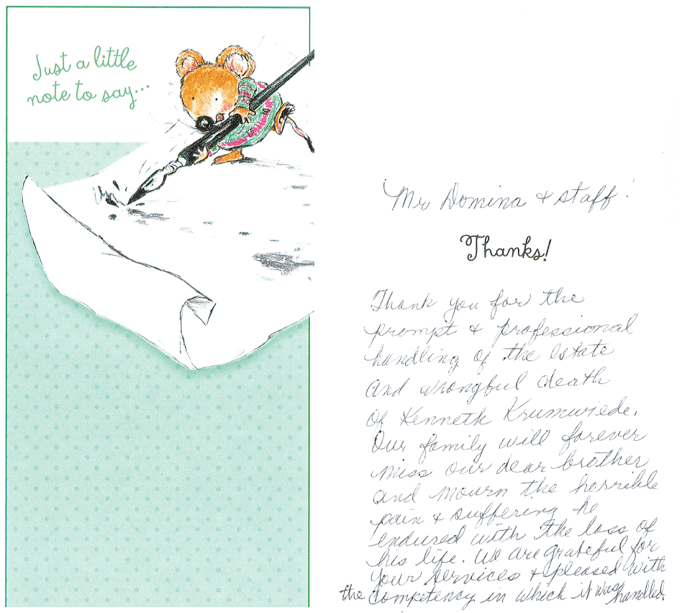 Just a little
note to say...
Mr Domina & staff:
Thanks!
Thank you for the
prompt & professional
handling of the estate
and wrongful death
of Kenneth Krumwiede.
Our family will forever
miss our dear brother
and mourn the horrible
pain & suffering he
endured with the loss of
his life. We are grateful for
your services & pleased with
the competency in which it was handled.